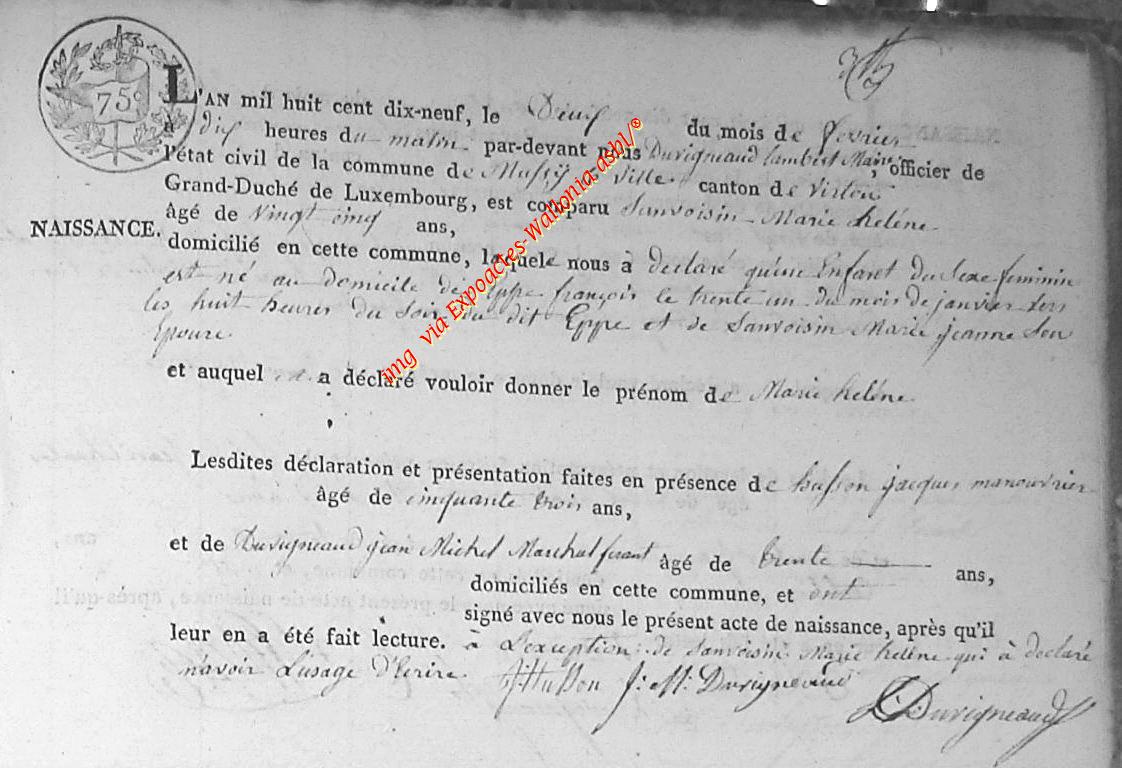 75c
L'AN mil huit cent dix-neuf, le Deux du mois de fevrier
à dix heures du matin par-devant nous Duvigneaud lambert Maire, officier de
l'état civil de la commune de Mussÿ la Ville canton de Virton
Grand-Duché de Luxembourg, est comparu Sanvoisin Marie heléne
âgé de Vingt cinq ans,
NAISSANCE.
domicilié en cette commune, laquele nous à declaré qu'une Enfant du sexe feminin
est né au domicile de Eppe françois le trente un du mois de janvier vers
les huit heures du soir du dit Eppe et de Sanvoisin Marie jeanne son
Epouse
et auquel a déclaré vouloir donner le prénom de Marie heléne
Lesdites déclaration et présentation faites en présence de husson jacques manouvrier
âgé de cinquante trois ans,
et de Duvigneaud jean Michel Marchal ferant âgé de trente ans,
domiciliés en cette commune, et ont
signé avec nous le présent acte de naissance, après qu'il
leur en a été fait lecture. à L'exception de Sanvoisin Marie heléne qui à declaré
n'avoir L'usage d'Ecrire. J. Husson J: M: Duvigneaud
L Duvigneaud
img via Expoactes-Wallonia-asbl/®